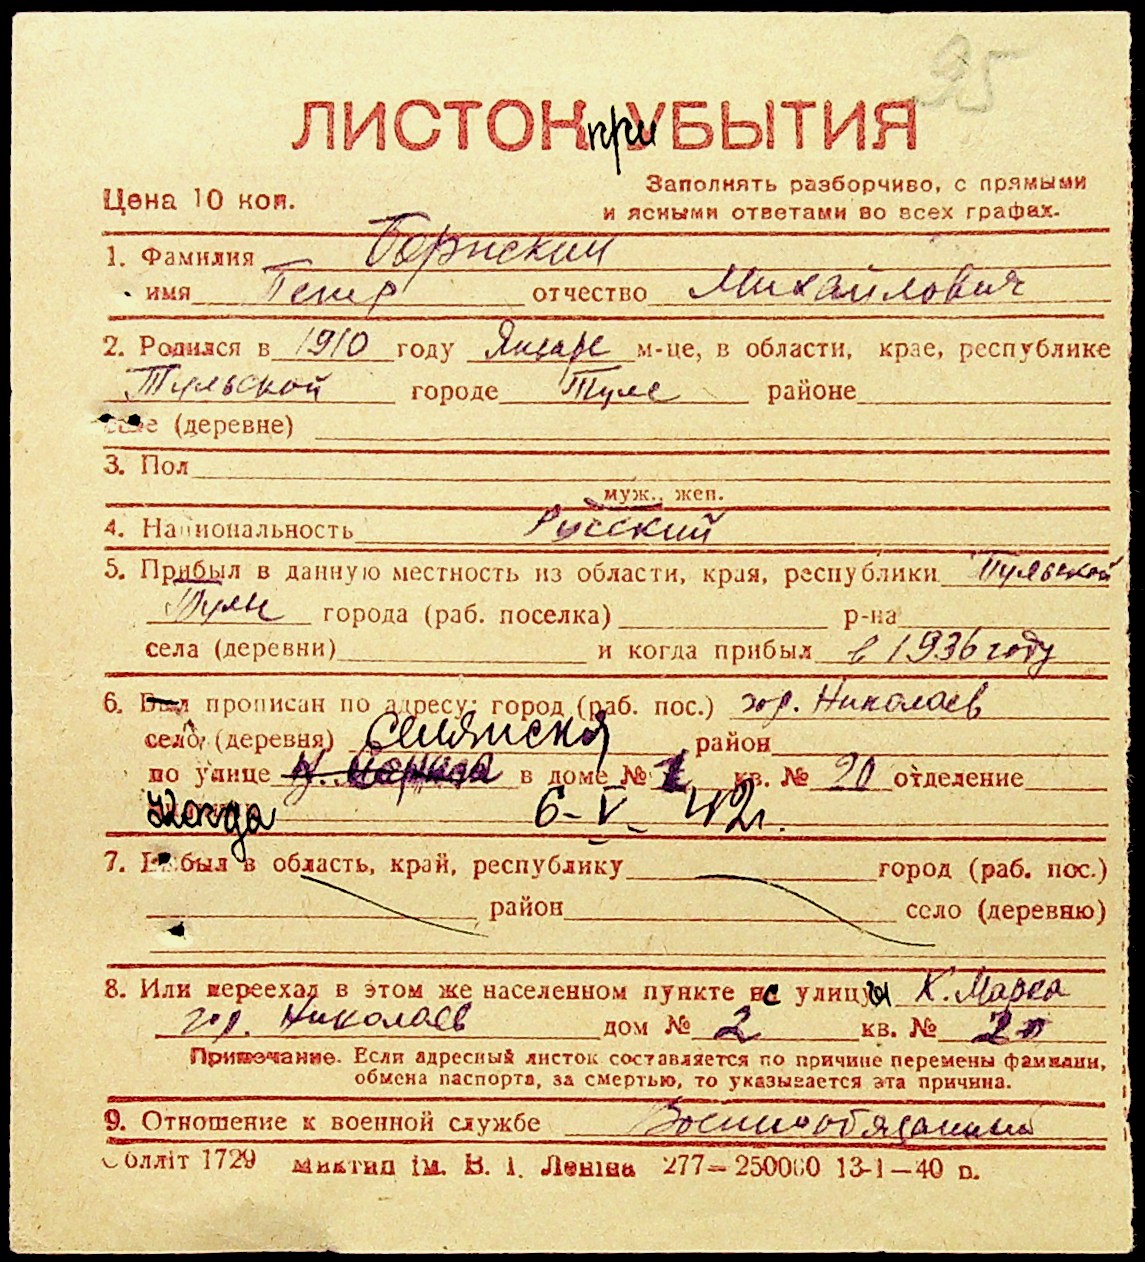 95
ЛИСТОК при УБЫТИЯ
Цена 10 коп.
Заполнять разборчиво, с прямыми
и ясными ответами во всех графах.
1. Фамилия
имя Петр отчество Михайлович
2. Родился в 1910 году Январе м-це, в области, крае, республике
Тульской городе Туле районе
селе (деревне)
3. Пол
муж., жен.
4. Национальность Русский
5. Прибыл в данную местность из области, края, республики Тульской
Тулы города (раб. поселка) р-на
села (деревни) и когда прибыл в 1936 году
6. Был прописан по адресу: город (раб. пос.) гор. Николаев
село (деревня) Селянская район
по улице в доме № кв. № 20 отделение
когда 6-V-42г.
7. Выбыл в область, край, республику город (раб. пос.)
район село (деревню)
8. Или переехал в этом же населенном пункте с улицы К. Маркса
гор. Николаев дом № 2 кв. № 20
Примечание. Если адресный листок составляется по причине перемены фамилии,
обмена паспорта, за смертью, то указывается эта причина.
9. Отношение к военной службе Военнообязанный
Обллiт 1729 iм. В. I. Ленiна 277—250000 13-1—40 р.